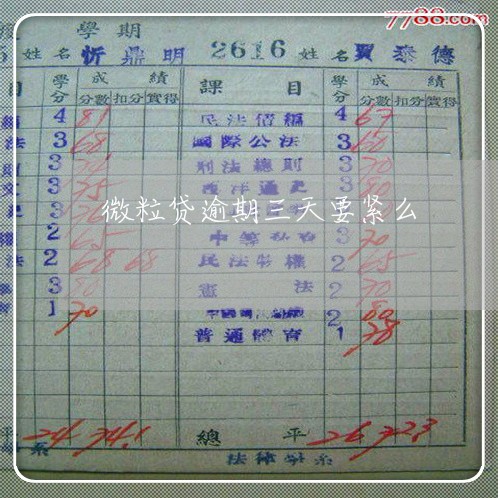 7788.com
學期
姓名 忻鼎明 2616 姓名 賈泰德
目 學分 成績 課目 學分 成績
分數 扣分 實得 分數 扣分 實得
4 81 民法債編 4 67
法 3 68 國際公法 3 60
3 刑法總則 3 70
3 75 西洋通史 3 80
微粒贷逾期三天要紧么
2 65 3 70
法 2 68 68 民法物權 2 65
3 80 憲法 2 70
1 70 2 80
普通體育 1 78
平 24 74.1 總平 26 72.3
系 法律學系